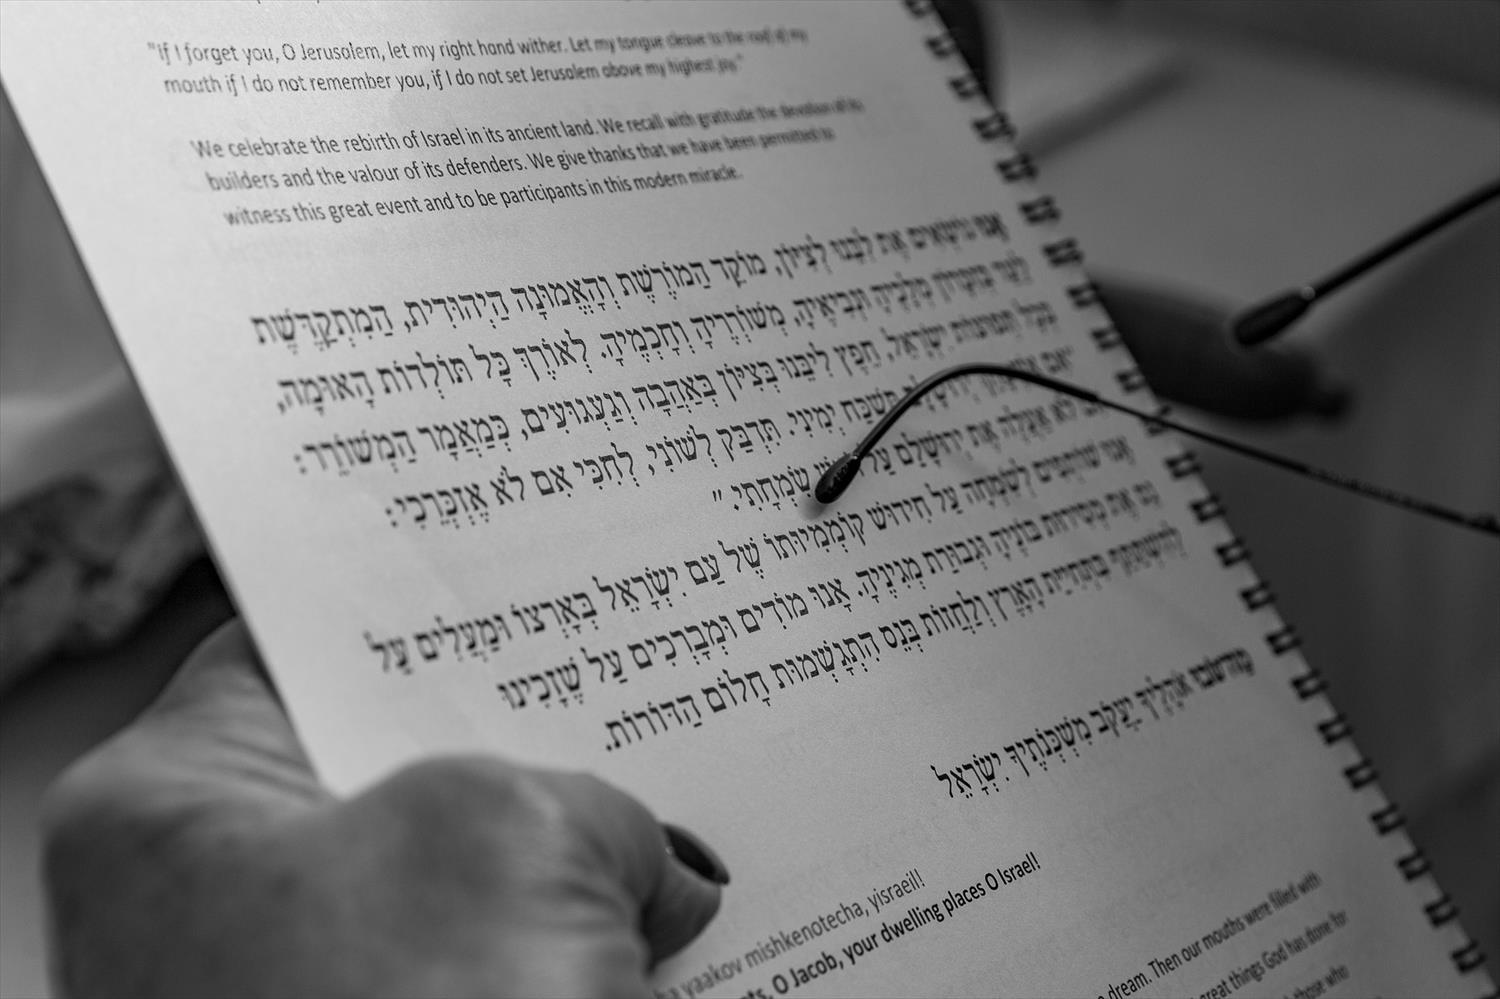 "If I forget you, O Jerusalem, let my right hand wither. Let my tongue cleave to the roof of my
mouth if I do not remember you, if I do not set Jerusalem above my highest joy."
We celebrate the rebirth of Israel in its ancient land. We recall with gratitude the devotion of its
builders and the valour of its defenders. We give thanks that we have been permitted to
witness this great event and to be participants in this modern miracle.
אָנוּ נוֹשְׂאִים אֶת לִבֵּנוּ לְצִיּוֹן, מוֹקֵד הַמּוֹרֶשֶׁת וְהָאֱמוּנָה הַיְהוּדִית, הַמִּתְקַדֶּשֶׁת
מְלָכֶיהָ וּנְבִיאֶיהָ, מְשׁוֹרְרֶיהָ וְחֲכָמֶיהָ. לְאוֹרֶךְ כָּל תּוֹלְדוֹת הָאוּמָה,
יִשְׂרָאֵל, חָפֵץ לִיבֵּנוּ בְּצִיּוֹן בְּאַהֲבָה וְגַעְגּוּעִים, כְּמַאֲמַר הַמְשׁוֹרֵר:
תִּשְׁכַּח יְמִינִי. תִּדְבַּק לְשׁוֹנִי, לְחִכִּי אִם לֹא אֶזְכְּרֵכִי:
לֹא אַעֲלֶה אֶת יְרוּשָׁלַם עַל שִׂמְחָתִי."
אָנוּ שׂוֹתְפִים לְשִׂמְחָה עַל חִידּוּשׁ קוֹמְמִיּוּתוֹ שֶׁל עַם יִשְׂרָאֵל בְּאַרְצוֹ וּמַעֲלִים עַל
נֵס אֶת מְסִירוּת בּוֹנֶיהָ וּגְבוּרַת מְגִינֶיהָ. אָנוּ מוֹדִים וּמְבָרְכִים עַל שֶׁזָּכִינוּ
לְהִשְׁתַּתֵּף בִּתְחִיַּת הָאָרֶץ וְלַחֲזוֹת בְּנֵס הִתְגַּשְּׁמוּת חָלוֹם הַדּוֹרוֹת.
מַה־טֹּבוּ אֹהָלֶיךָ יַעֲקֹב מִשְׁכְּנֹתֶיךָ יִשְׂרָאֵל
yaakov mishkenotecha, yisraeil!
O Jacob, your dwelling places O Israel!
dream. Then our mouths were filled with
great things God has done for
those who